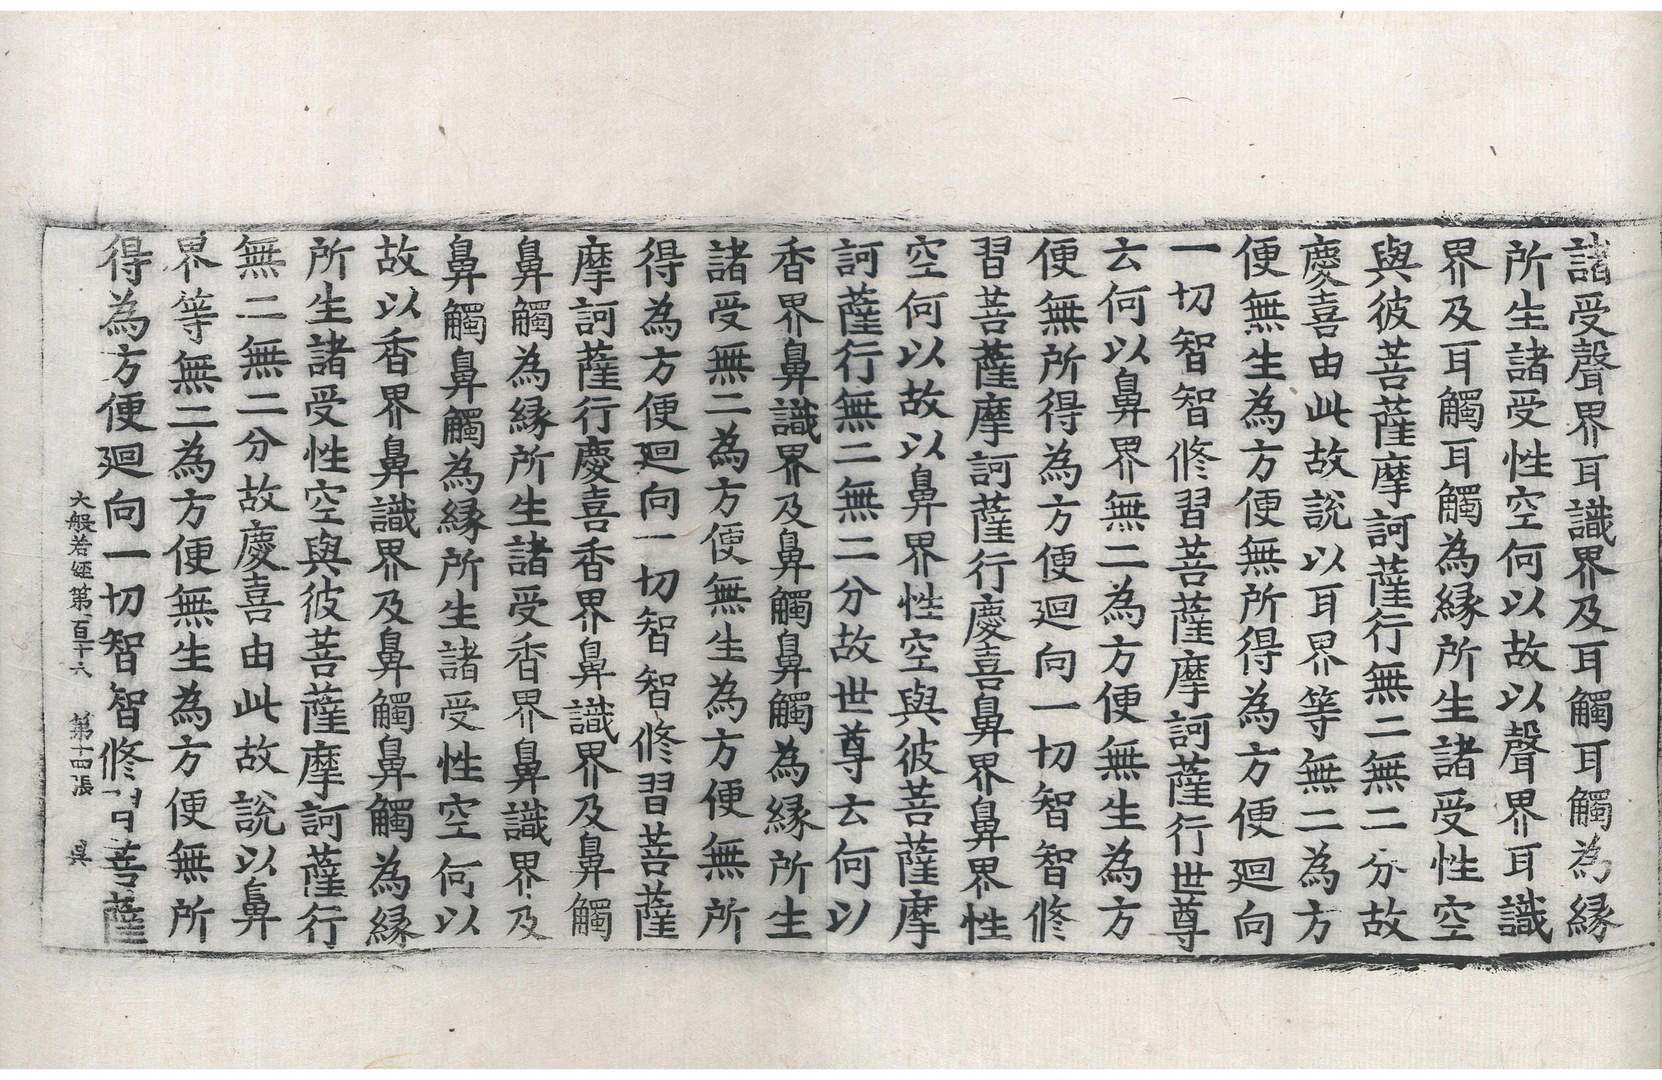 諸受聲界耳識界及耳觸耳觸為縁
所生諸受性空何以故以聲界耳識
界及耳觸耳觸為縁所生諸受性空
與彼菩薩摩訶薩行無二無二分故
慶喜由此故說以耳界等無二為方
便無生為方便無所得為方便迴向
一切智智修習菩薩摩訶薩行世尊
云何以鼻界無二為方便無生為方
便無所得為方便迴向一切智智修
習菩薩摩訶薩行慶喜鼻界鼻界性
空何以故以鼻界性空與彼菩薩摩
訶薩行無二無二分故世尊云何以
香界鼻識界及鼻觸鼻觸為縁所生
諸受無二為方便無生為方便無所
得為方便迴向一切智智修習菩薩
摩訶薩行慶喜香界鼻識界及鼻觸
鼻觸為縁所生諸受香界鼻識界及
鼻觸鼻觸為縁所生諸受性空何以
故以香界鼻識界及鼻觸鼻觸為縁
所生諸受性空與彼菩薩摩訶薩行
無二無二分故慶喜由此故說以鼻
界等無二為方便無生為方便無所
得為方便迴向一切智智修習菩薩
大般若經第一百二十六 第十四張 昃